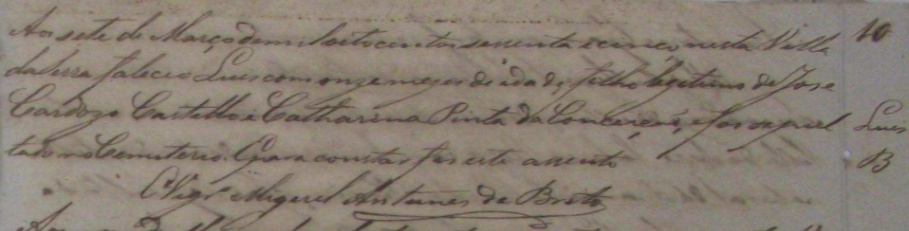 Aos sete de Março de mil oitocentos sessenta e cinco nesta Villa 10
da Serra faleceo Luis com onze mezes de idade, filho legitimo de Jose
Cardozo Castello e Catharina Pinta da Conceiçaõ, e foi sepul Luis
tado no Cemiterio. E para constar fis este assento B
O Vigrº Miguel Antunes de Brito